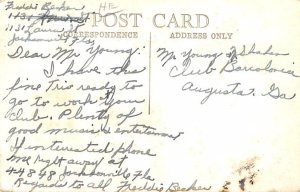 Freddie Becker HE
1131
Jacksonville Fla.
POST CARD
CORRESPONDENCE
ADDRESS ONLY
Dear Mr. Young:
I have this
fine trio ready to
go to work your
Club. Plenty of
good music & entertainment
If interested phone
me right away at
44848 Jacksonville Fla
Regards to all Freddie Becker
Mr Young
Club
Augusta. Ga